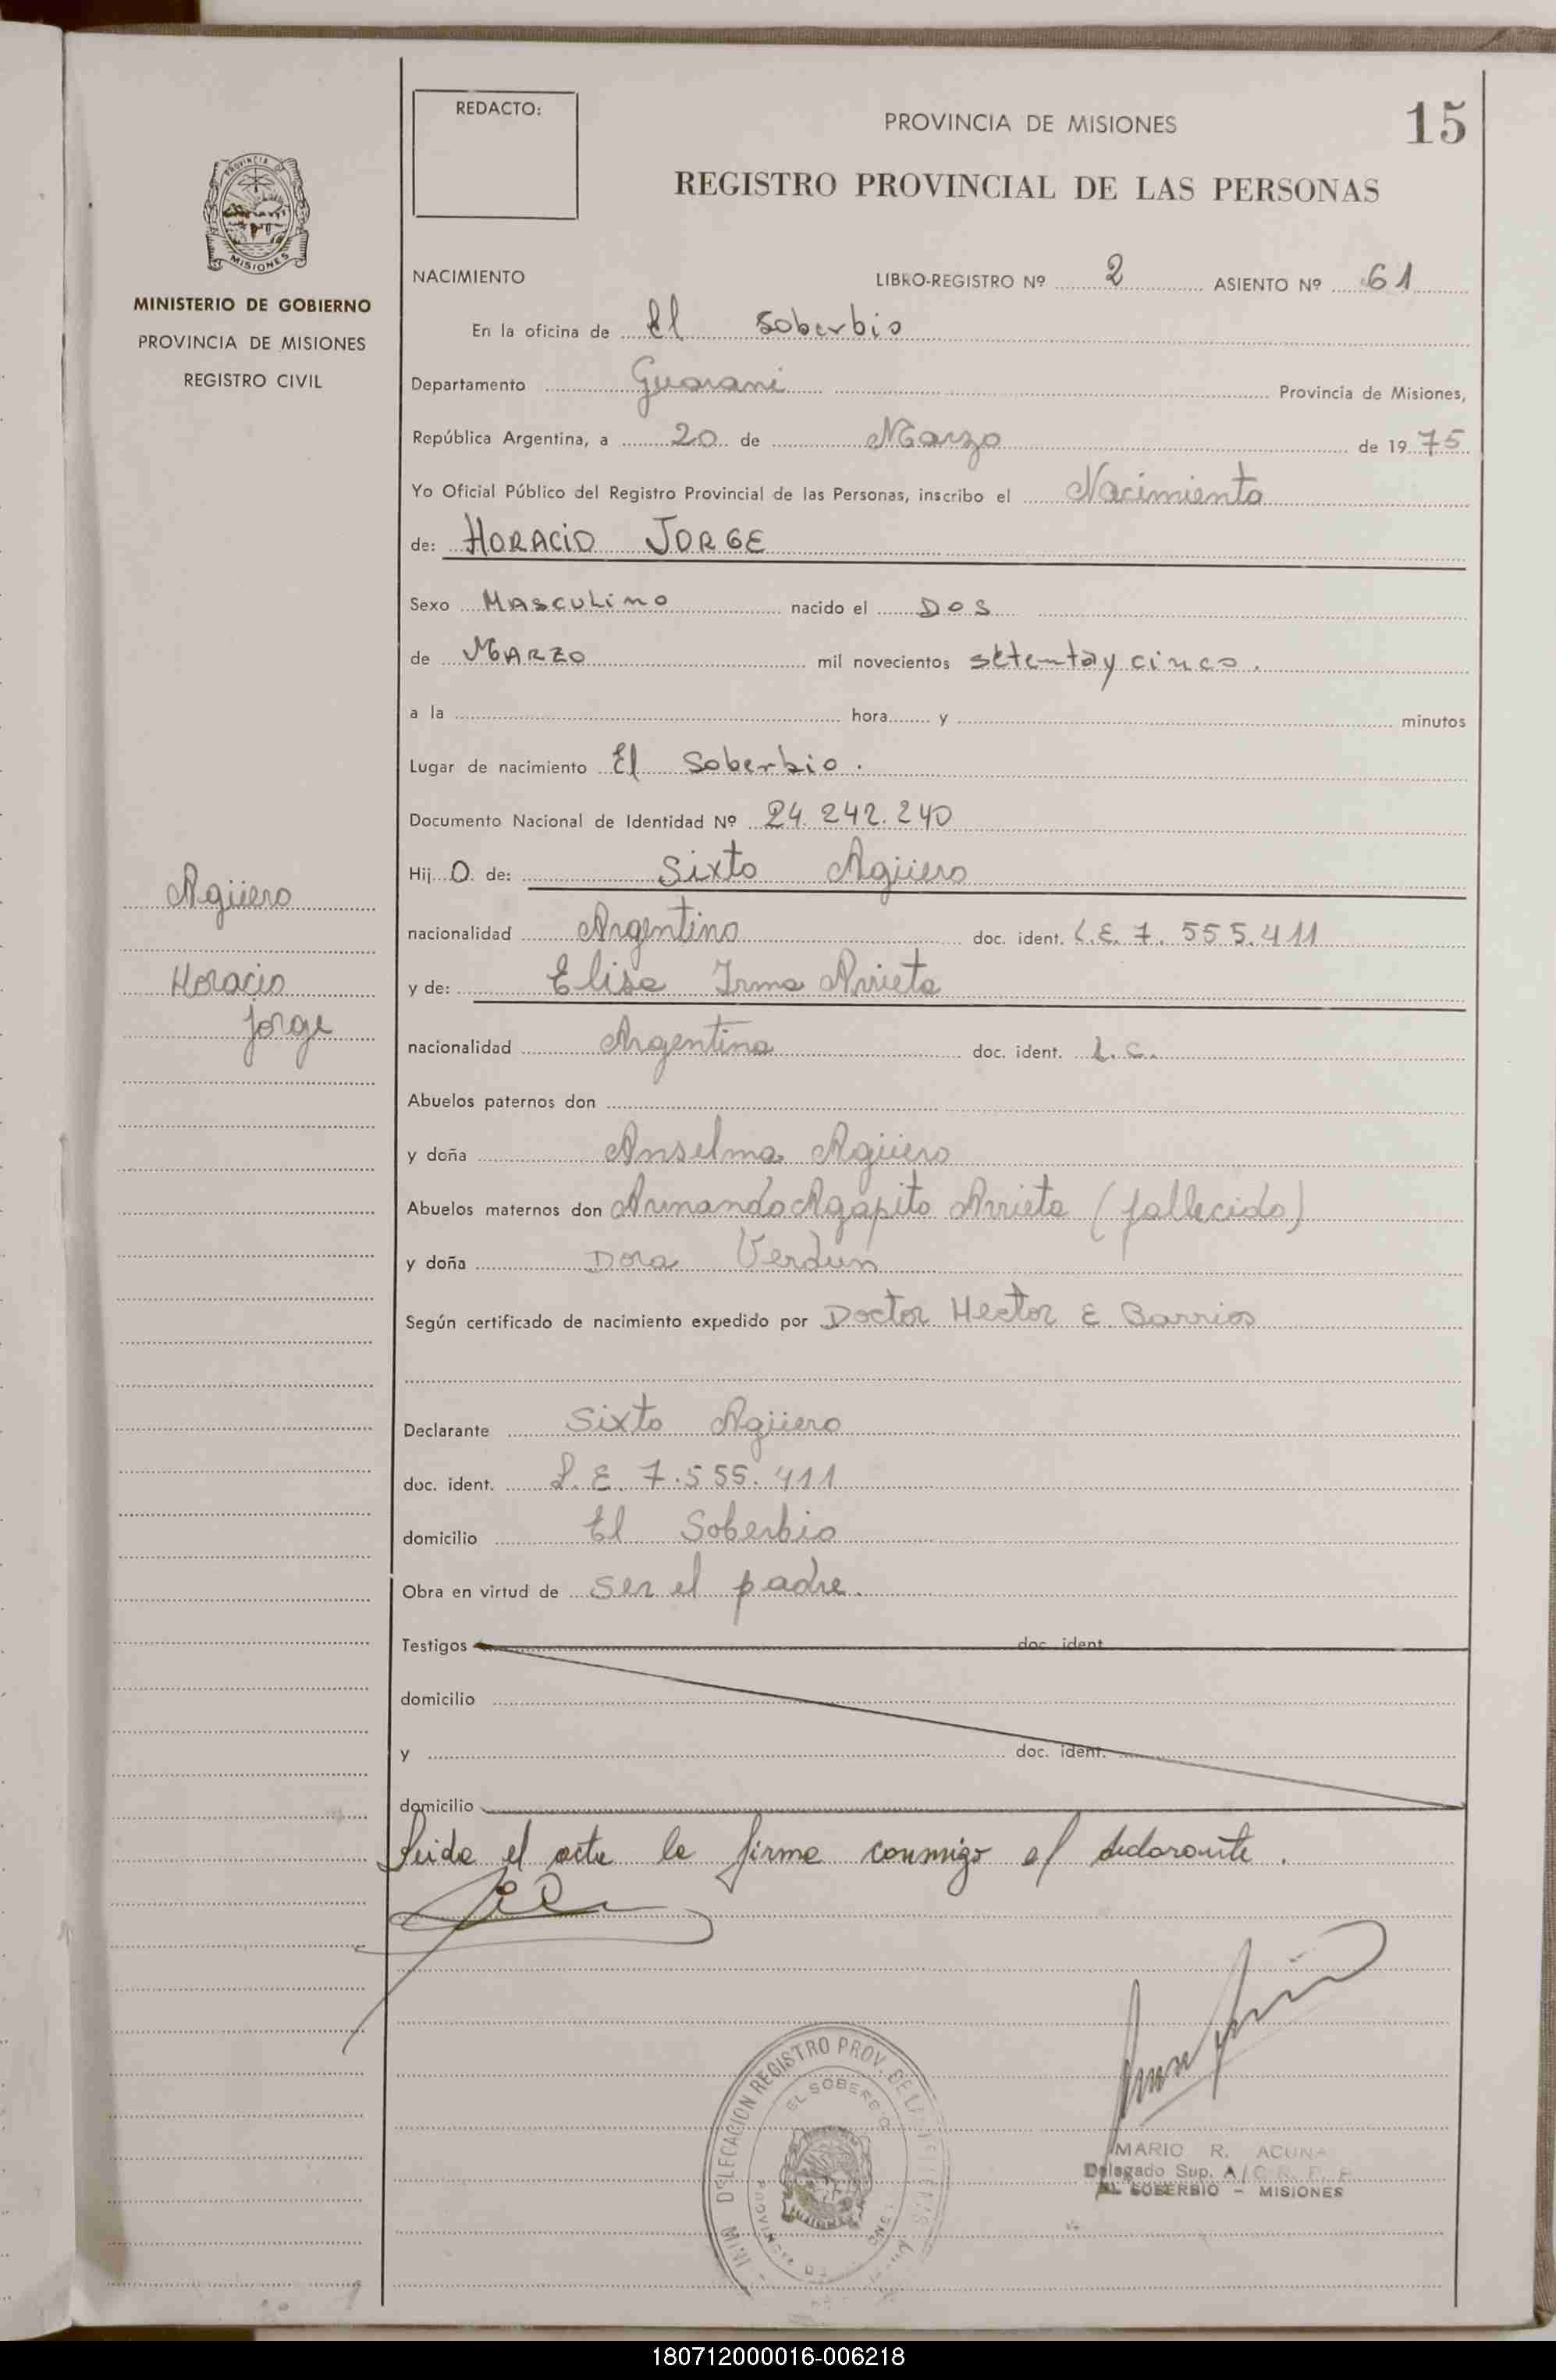 REDACTO:
PROVINCIA DE MISIONES
15
REGISTRO PROVINCIAL DE LAS PERSONAS
PROVINCIA
MISIONES
MINISTERIO DE GOBIERNO
PROVINCIA DE MISIONES
REGISTRO CIVIL
NACIMIENTO LIBRO-REGISTRO Nº 2 ASIENTO Nº 61
En la oficina de El Soberbio
Departamento Guarani Provincia de Misiones,
República Argentina, a 20 de Marzo de 1975
Yo Oficial Público del Registro Provincial de las Personas, inscribo el Nacimiento
de: HORACIO JORGE
Sexo MASCULINO nacido el DOS
de MARZO mil novecientos setenta y cinco.
a la hora y minutos
Lugar de nacimiento El Soberbio.
Documento Nacional de Identidad Nº 24.242.240
Agüero
Horacio
Jorge
Hij O de: Sixto Agüero
nacionalidad Argentino doc. ident. L.E. 7.555.411
y de: Elisa Irma Arrieta
nacionalidad Argentina doc. ident. L.C.
Abuelos paternos don
y doña Anselma Agüero
Abuelos maternos don Armando Agapito Arrieta (fallecido)
y doña Dora Verdun
Según certificado de nacimiento expedido por Doctor Hector E Barrios
Declarante Sixto Agüero
doc. ident. L.E. 7.555.411
domicilio El Soberbio
Obra en virtud de ser el padre.
Testigos doc. ident.
domicilio
y doc. ident.
domicilio
Leida el acta la firma conmigo el declarante.
DELEGACION REGISTRO PROV. DE LAS
EL SOBERBIO
PROVINCIA DE
MARIO R. ACUÑA
Delegado Sup. A/C R. P. P.
EL SOBERBIO - MISIONES
180712000016-006218